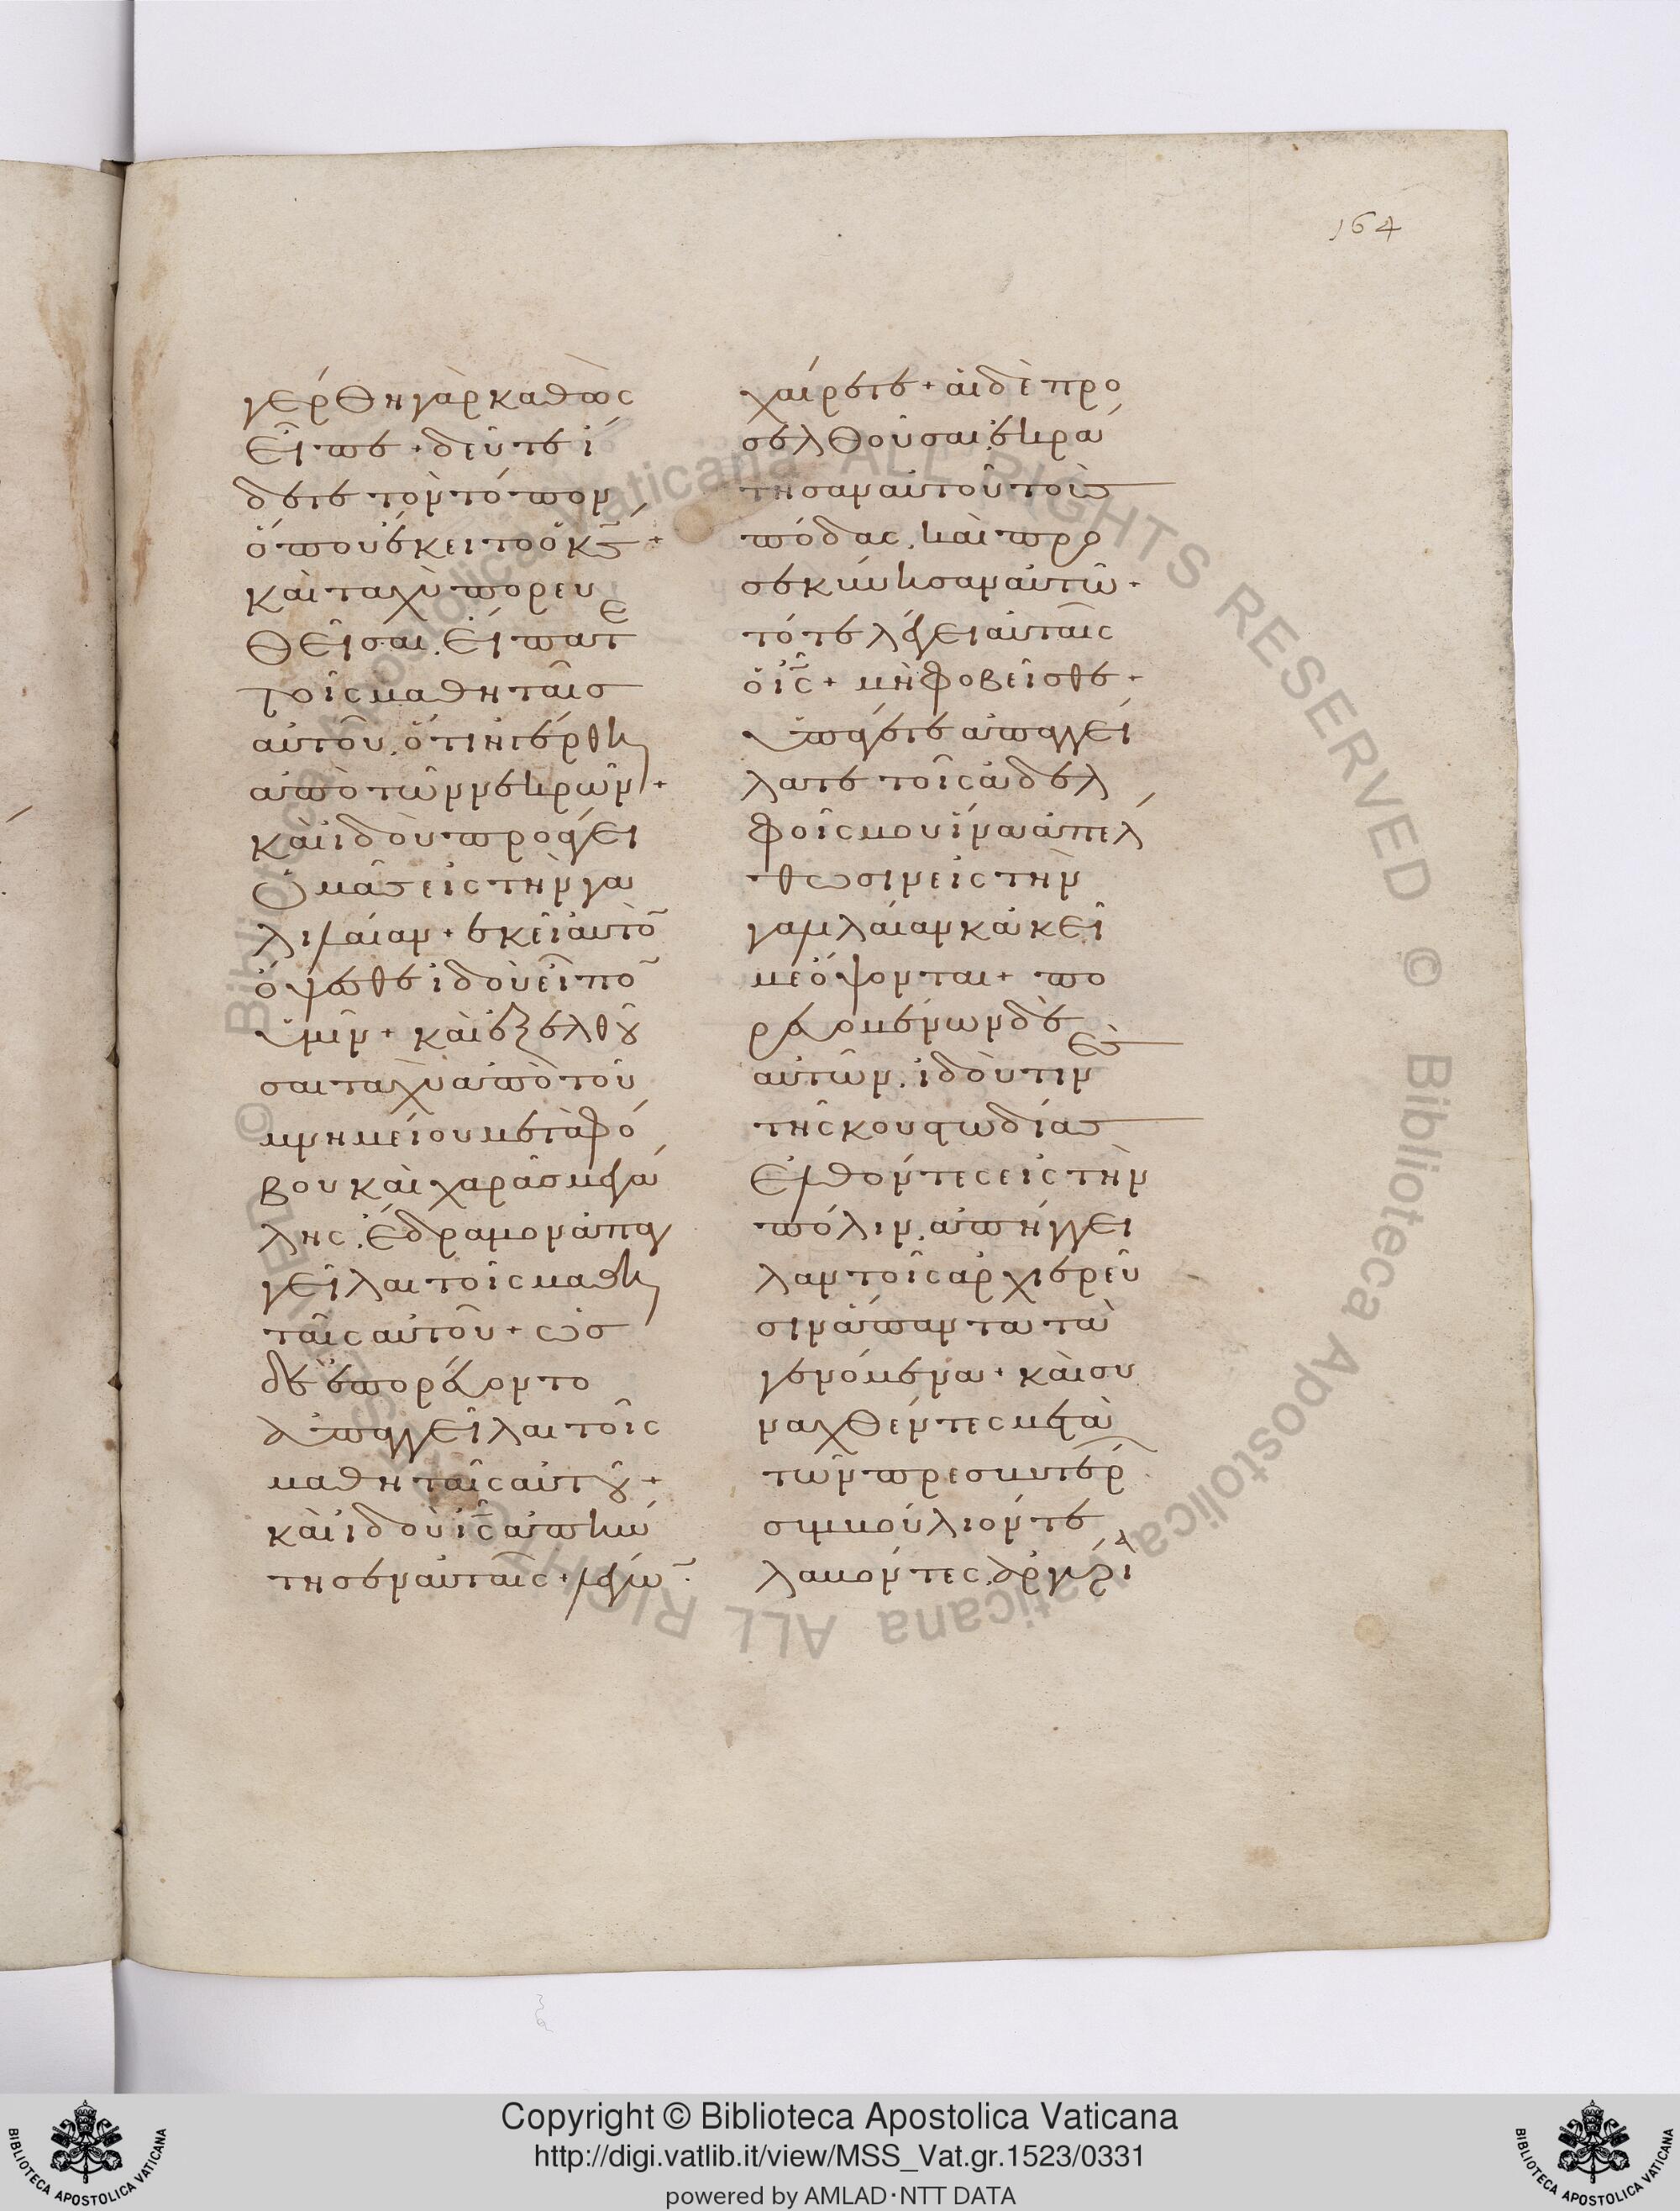 164
γέρθη γὰρ καθὼς
εἶπε + δεῦτε ἴ
δετε τὸν τόπον
ὅπου ἔκειτο ὁ κ̅ς̅ +
καὶ ταχὺ πορευ
θεῖσαι. εἴπατε
τοῖς μαθηταῖσ
αὐτοῦ. ὅτι ἠγέρθη
ἀπὸ τῶν νεκρῶν +
καὶ ἰδοὺ προάγει
ὑμᾶς εἰς τὴν γα
λιλαίαν + ἐκεῖ αὐτὸ̅
ὄψεσθε ἰδοὺ εἶπο̅
ὑμῖν + καὶ ἐξελθοῦ
σαι ταχὺ ἀπὸ τοῦ
μνημείου μετὰ φό
βου καὶ χαρᾶσ μεγά
λης. ἔδραμον ἀπαγ
γεῖλαι τοῖς μαθη
ταῖς αὐτοῦ + ὡσ
δὲ ἐπορεύοντο
ἀπαγγεῖλαι τοῖς
μαθηταῖς αὐτοῦ +
καὶ ἰδοὺ ι̅ς̅ ἀπήν
τησεν αὐταῖς + λέγω̅.
χαίρετε + αἱ δὲ προ
σελθοῦσαι ἐκρά
τησαν αὐτοῦ τοὺς
πόδας. καὶ προ
σεκύνησαν αὐτῶ +
τότε λέγει αὐταῖς
ὁ ι̅ς̅ + μὴ φοβεῖσθε +
ὑπάγετε ἀπαγγεί
λατε τοῖς ἀδελ
φοῖς μου ἵνα ἀπέλ
θωσιν εἰς τὴν
γαλιλαίαν κἀκεῖ
με ὄψονται + πο
ρευομένων δὲ
αὐτῶν. ἰδού τινὲς
τῆς κουστωδίας
ἐλθόντες εἰς τὴν
πόλιν. ἀπήγγει
λαν τοῖς ἀρχιερεῦ
σιν ἅπαντα τὰ
γενόμενα + καὶ συ
ναχθέντες μετὰ
τῶν πρεσβυτέρ
συμβούλιόν τε
λαβόντες. ἀργύρι
Copyright © Biblioteca Apostolica Vaticana
http://digi.vatlib.it/view/MSS_Vat.gr.1523/0331
powered by AMLAD･NTT DATA
BIBLIOTECA APOSTOLICA VATICANA
BIBLIOTECA APOSTOLICA VATICANA
© Biblioteca Apostolica Vaticana ALL RIGHTS RESERVED © Biblioteca Apostolica Vaticana ALL RIGHTS RESERVED